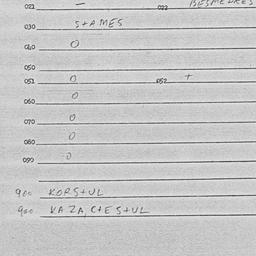 021 — 022 BESMENRES
030 STAMES
040 0
050
051 0 052 +
060 0
070 0
080 0
090 0
900 KORSTUL
900 KAZA, CTESTUL